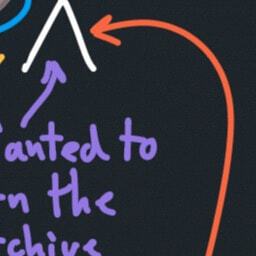 anted to
n the
chive